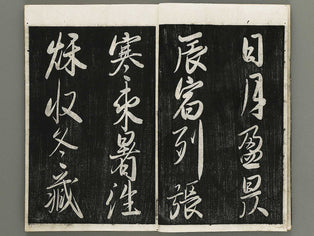 日月盈昃
辰宿列張
寒來暑往
秋收冬藏